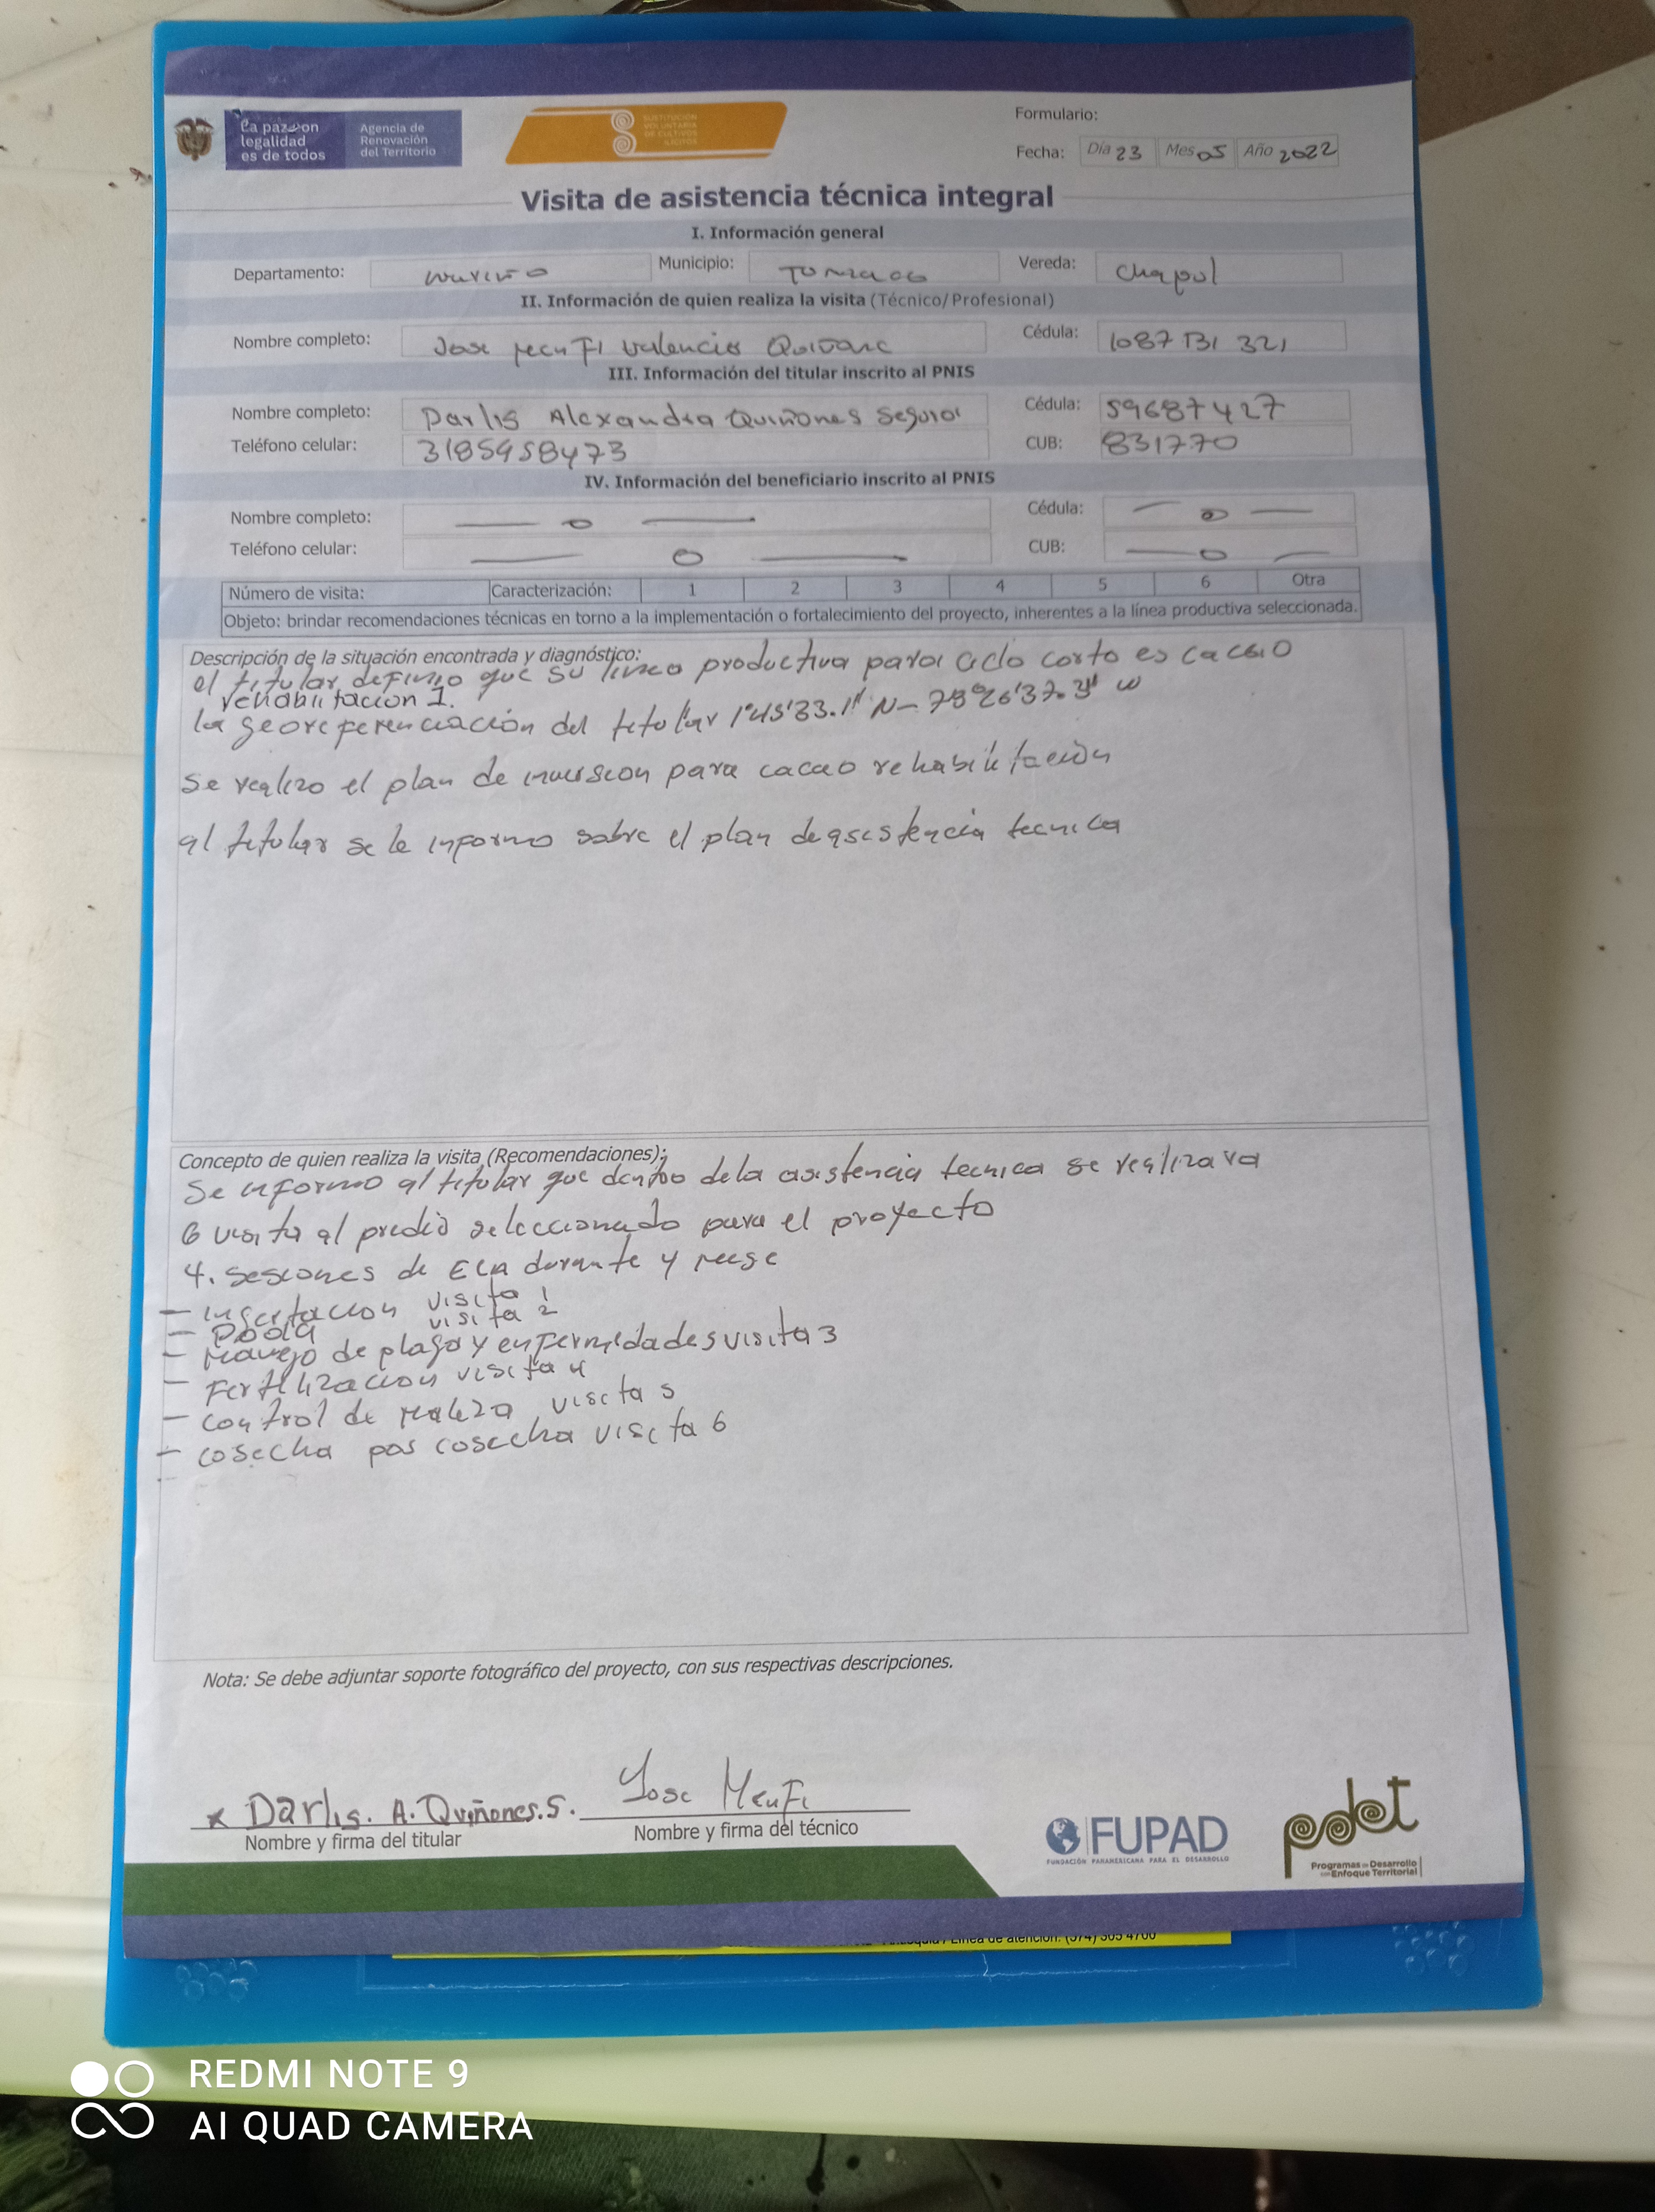 La paz con
legalidad
es de todos
Agencia de
Renovación
del Territorio
SUSTITUCIÓN
VOLUNTARIA
DE CULTIVOS
ILÍCITOS
Formulario:
Fecha: Día 23 Mes 05 Año 2022
Visita de asistencia técnica integral
I. Información general
Departamento: Nariño Municipio: Tumaco Vereda: Chapul
II. Información de quien realiza la visita (Técnico/ Profesional)
Nombre completo: Jose Menfi Valencia Cédula: 1087131 321
III. Información del titular inscrito al PNIS
Nombre completo: Darlis Alexandra Quiñones Segura Cédula: 59687427
Teléfono celular: 3185958473 CUB: 831770
IV. Información del beneficiario inscrito al PNIS
Nombre completo: — o — Cédula: — o —
Teléfono celular: — o — CUB: — o —
Número de visita: Caracterización: 1 2 3 4 5 6 Otra
Objeto: brindar recomendaciones técnicas en torno a la implementación o fortalecimiento del proyecto, inherentes a la línea productiva seleccionada.
Descripción de la situación encontrada y diagnóstico:
el titular definio que su linea productiva para ciclo corto es cacao
rehabilitacion 1.
la georeferenciación del titular 1°45'33.1" N-
se realizo el plan de inversion para cacao rehabilitación
al titular se le informo sobre el plan de asistencia tecnica
Concepto de quien realiza la visita (Recomendaciones):
se informo al titular que dentro de la asistencia tecnica se realizara
6 visita al predio seleccionado para el proyecto
4. sesiones de ECA durante y
- visita 1
- Poda visita 2
- Manejo de plaga y enfermedades visita 3
- Fertilizacion visita 4
- control de maleza visita 5
- cosecha pos cosecha visita 6
Nota: Se debe adjuntar soporte fotográfico del proyecto, con sus respectivas descripciones.
x Darlis. A. Quiñones. S. Jose Menfi
Nombre y firma del titular Nombre y firma del técnico
FUPAD
FUNDACIÓN PANAMERICANA PARA EL DESARROLLO
pdet
Programas de Desarrollo
con Enfoque Territorial
Línea de atención: (574) 305 4700
REDMI NOTE 9
AI QUAD CAMERA